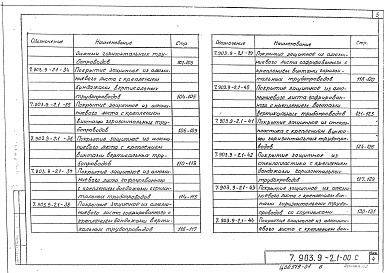 5
Обозначение Наименование Стр
винтами горизонтальных трубопроводов 102,103
7.903.9-2.1-34 Покрытие защитное из алюминиевого листа с креплением бандажами вертикальных трубопроводов 104-105
7.903.9-2.1-35 Покрытие защитное из алюминиевого листа с креплением винтами горизонтальных трубопроводов
7.903.9-2.1-36 Покрытие защитное из алюминиевого листа с креплением винтами вертикальных трубопроводов
7.903.9-2.1-37 Покрытие защитное из алюминиевого листа гофрированного с креплением бандажами горизонтальных трубопроводов 114-115
7.903.9-2.1-38 Покрытие защитное из алюминиевого листа гофрированного с креплением бандажами вертикальных трубопроводов 116-117
Обозначение Наименование Стр.
7.903.9-2.1-39 Покрытие защитное из алюминиевого листа гофрированного с креплением винтами горизонтальных трубопроводов 118-120
7.903.9-2.1-40 Покрытие защитное из алюминиевого листа гофрированного с креплением винтами вертикальных трубопроводов 121-123
7.903.9-2.1-41 Покрытие защитное из стеклопластика с креплением винтами горизонтальных трубопроводов 124-126
7.903.9-2.1-42 Покрытие защитное из стеклопластика с креплением бандажами горизонтальных трубопроводов 127-129
7.903.9-2.1-43 Покрытие защитное из алюминиевого листа с креплением винтами горизонтальных трубопроводов со спутниками 130-131
Покрытие защитное из алюминиевого листа с креплением
7.903.9-2.1-00 С